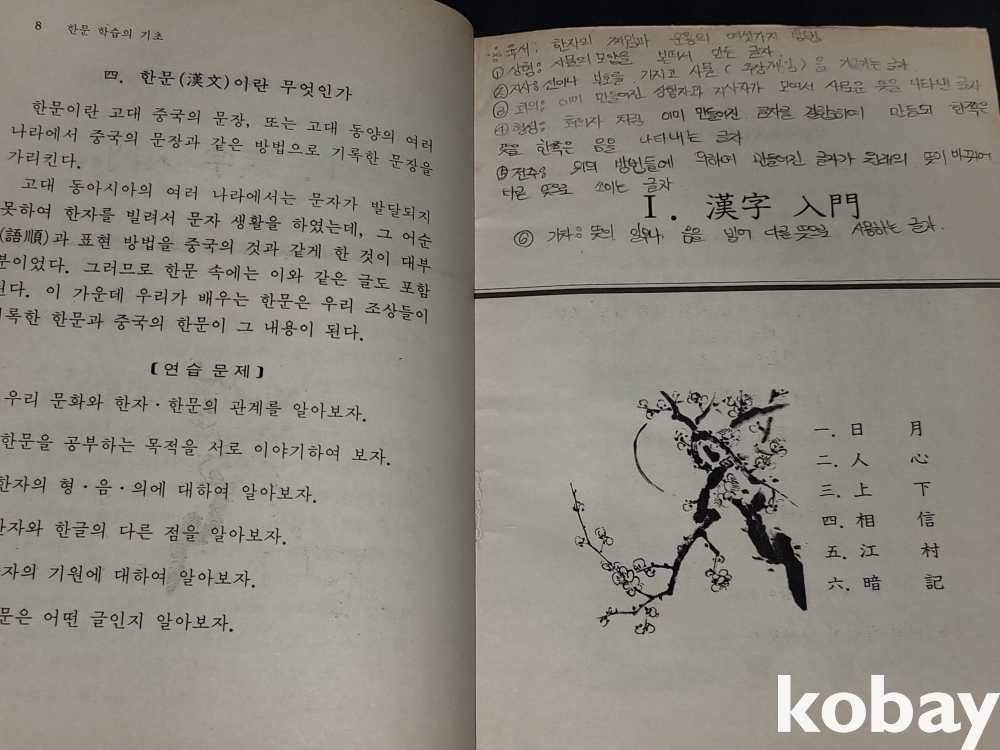 8 한문 학습의 기초
四. 한문(漢文)이란 무엇인가
한문이란 고대 중국의 문장, 또는 고대 동양의 여러
나라에서 중국의 문장과 같은 방법으로 기록한 문장을
가리킨다.
고대 동아시아의 여러 나라에서는 문자가 발달되지
못하여 한자를 빌려서 문자 생활을 하였는데, 그 어순
(語順)과 표현 방법을 중국의 것과 같게 한 것이 대부
분이었다. 그러므로 한문 속에는 이와 같은 글도 포함
된다. 이 가운데 우리가 배우는 한문은 우리 조상들이
록한 한문과 중국의 한문이 그 내용이 된다.
〔연습 문제〕
우리 문화와 한자·한문의 관계를 알아보자.
한문을 공부하는 목적을 서로 이야기하여 보자.
한자의 형·음·의에 대하여 알아보자.
한자와 한글의 다른 점을 알아보자.
자의 기원에 대하여 알아보자.
문은 어떤 글인지 알아보자.
육서: 한자의 짜임과 운용의 여섯가지 방법
① 상형: 사물의 모양을 본떠서 만든 글자
② 지사: 선이나 부호를 가지고 사물(추상개념)을 가리키는 글자
③ 회의: 이미 만들어진 상형자와 지사자가 모여서 새로운 뜻을 나타낸 글자
④ 형성: 회의자 처럼 이미 만들어진 글자을 결합하여 만들되 한쪽은
뜻을 한쪽은 음을 나타내는 글자
⑤ 전주: 위의 방법들에 의하여 만들어진 글자가 원래의 뜻이 바뀌어
다른 뜻으로 쓰이는 글자
I. 漢字 入門
⑥ 가차: 뜻이 음을 빌어 다른 뜻으로 사용하는 글자.
一. 日 月
二. 人 心
三. 上 下
四. 相 信
五. 江 村
六. 暗 記
kobay